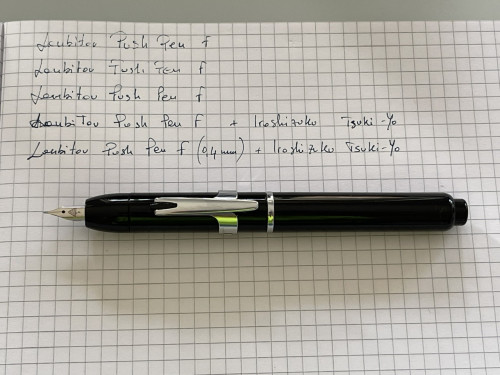 Loubitov Push Pen f
Loubitov Push Pen f
Loubitov Push Pen f
LoubiTov Push Pen F + Iroshizuku Tsuki-Yo
Loubitov Push Pen f (0,4 mm) + Iroshizuku Tsuki-Yo